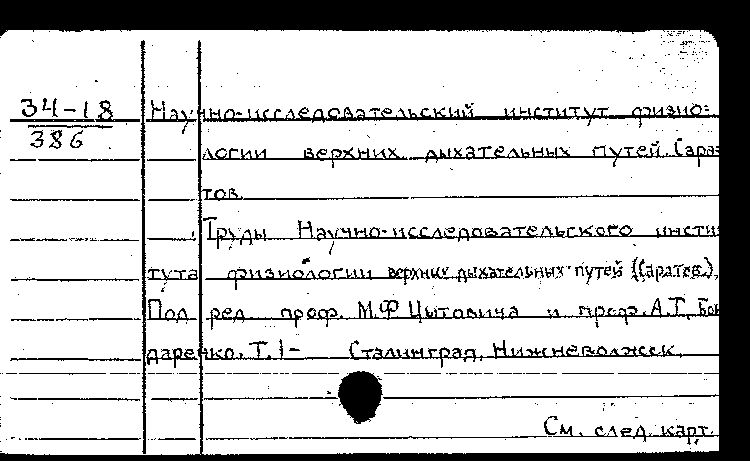 34-18
386
Научно-исследовательский институт физио-
логии верхних дыхательных путей. Сара
тов
Труды Научно-исследовательского инсти
тута физиологии верхних дыхательных путей (Саратов.),
Под ред. проф. М.Ф Цытовича и проф. А.Т. Бон
даренко. Т. 1- Сталинград, Нижневолжск.
См. след. карт.